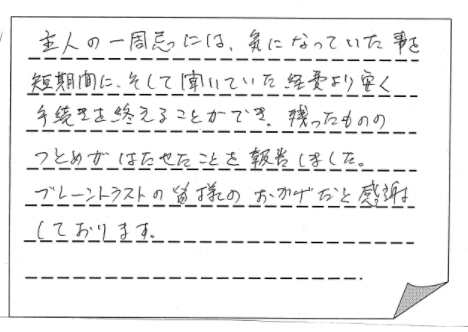 主人の一周忌には、気になっていた事を
短期間に、そして聞いていた経費より安く
手続きを終えることができ、残ったものの
つとめがはたせたことを報告しました。
ブレーントラストの皆様のおかげだと感謝
しております。